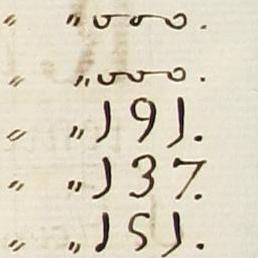 " "000.
" "000.
" "191.
" "137.
" "151.